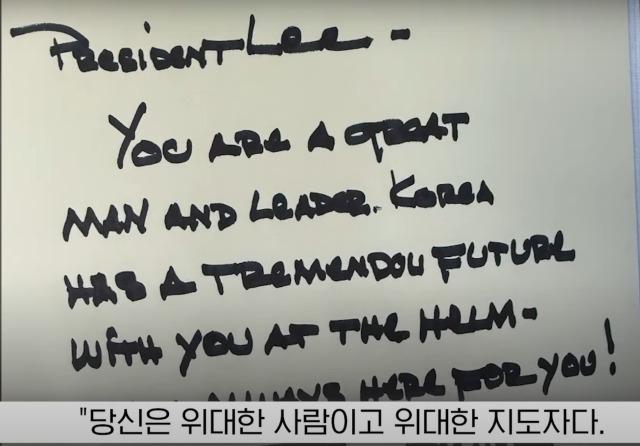 PRESIDENT LEE -
YOU ARE A GREAT
MAN AND LEADER. KOREA
HAS A TREMENDOU FUTURE
WITH YOU AT THE HELM-
ALWAYS HERE FOR YOU!
"당신은 위대한 사람이고 위대한 지도자다.